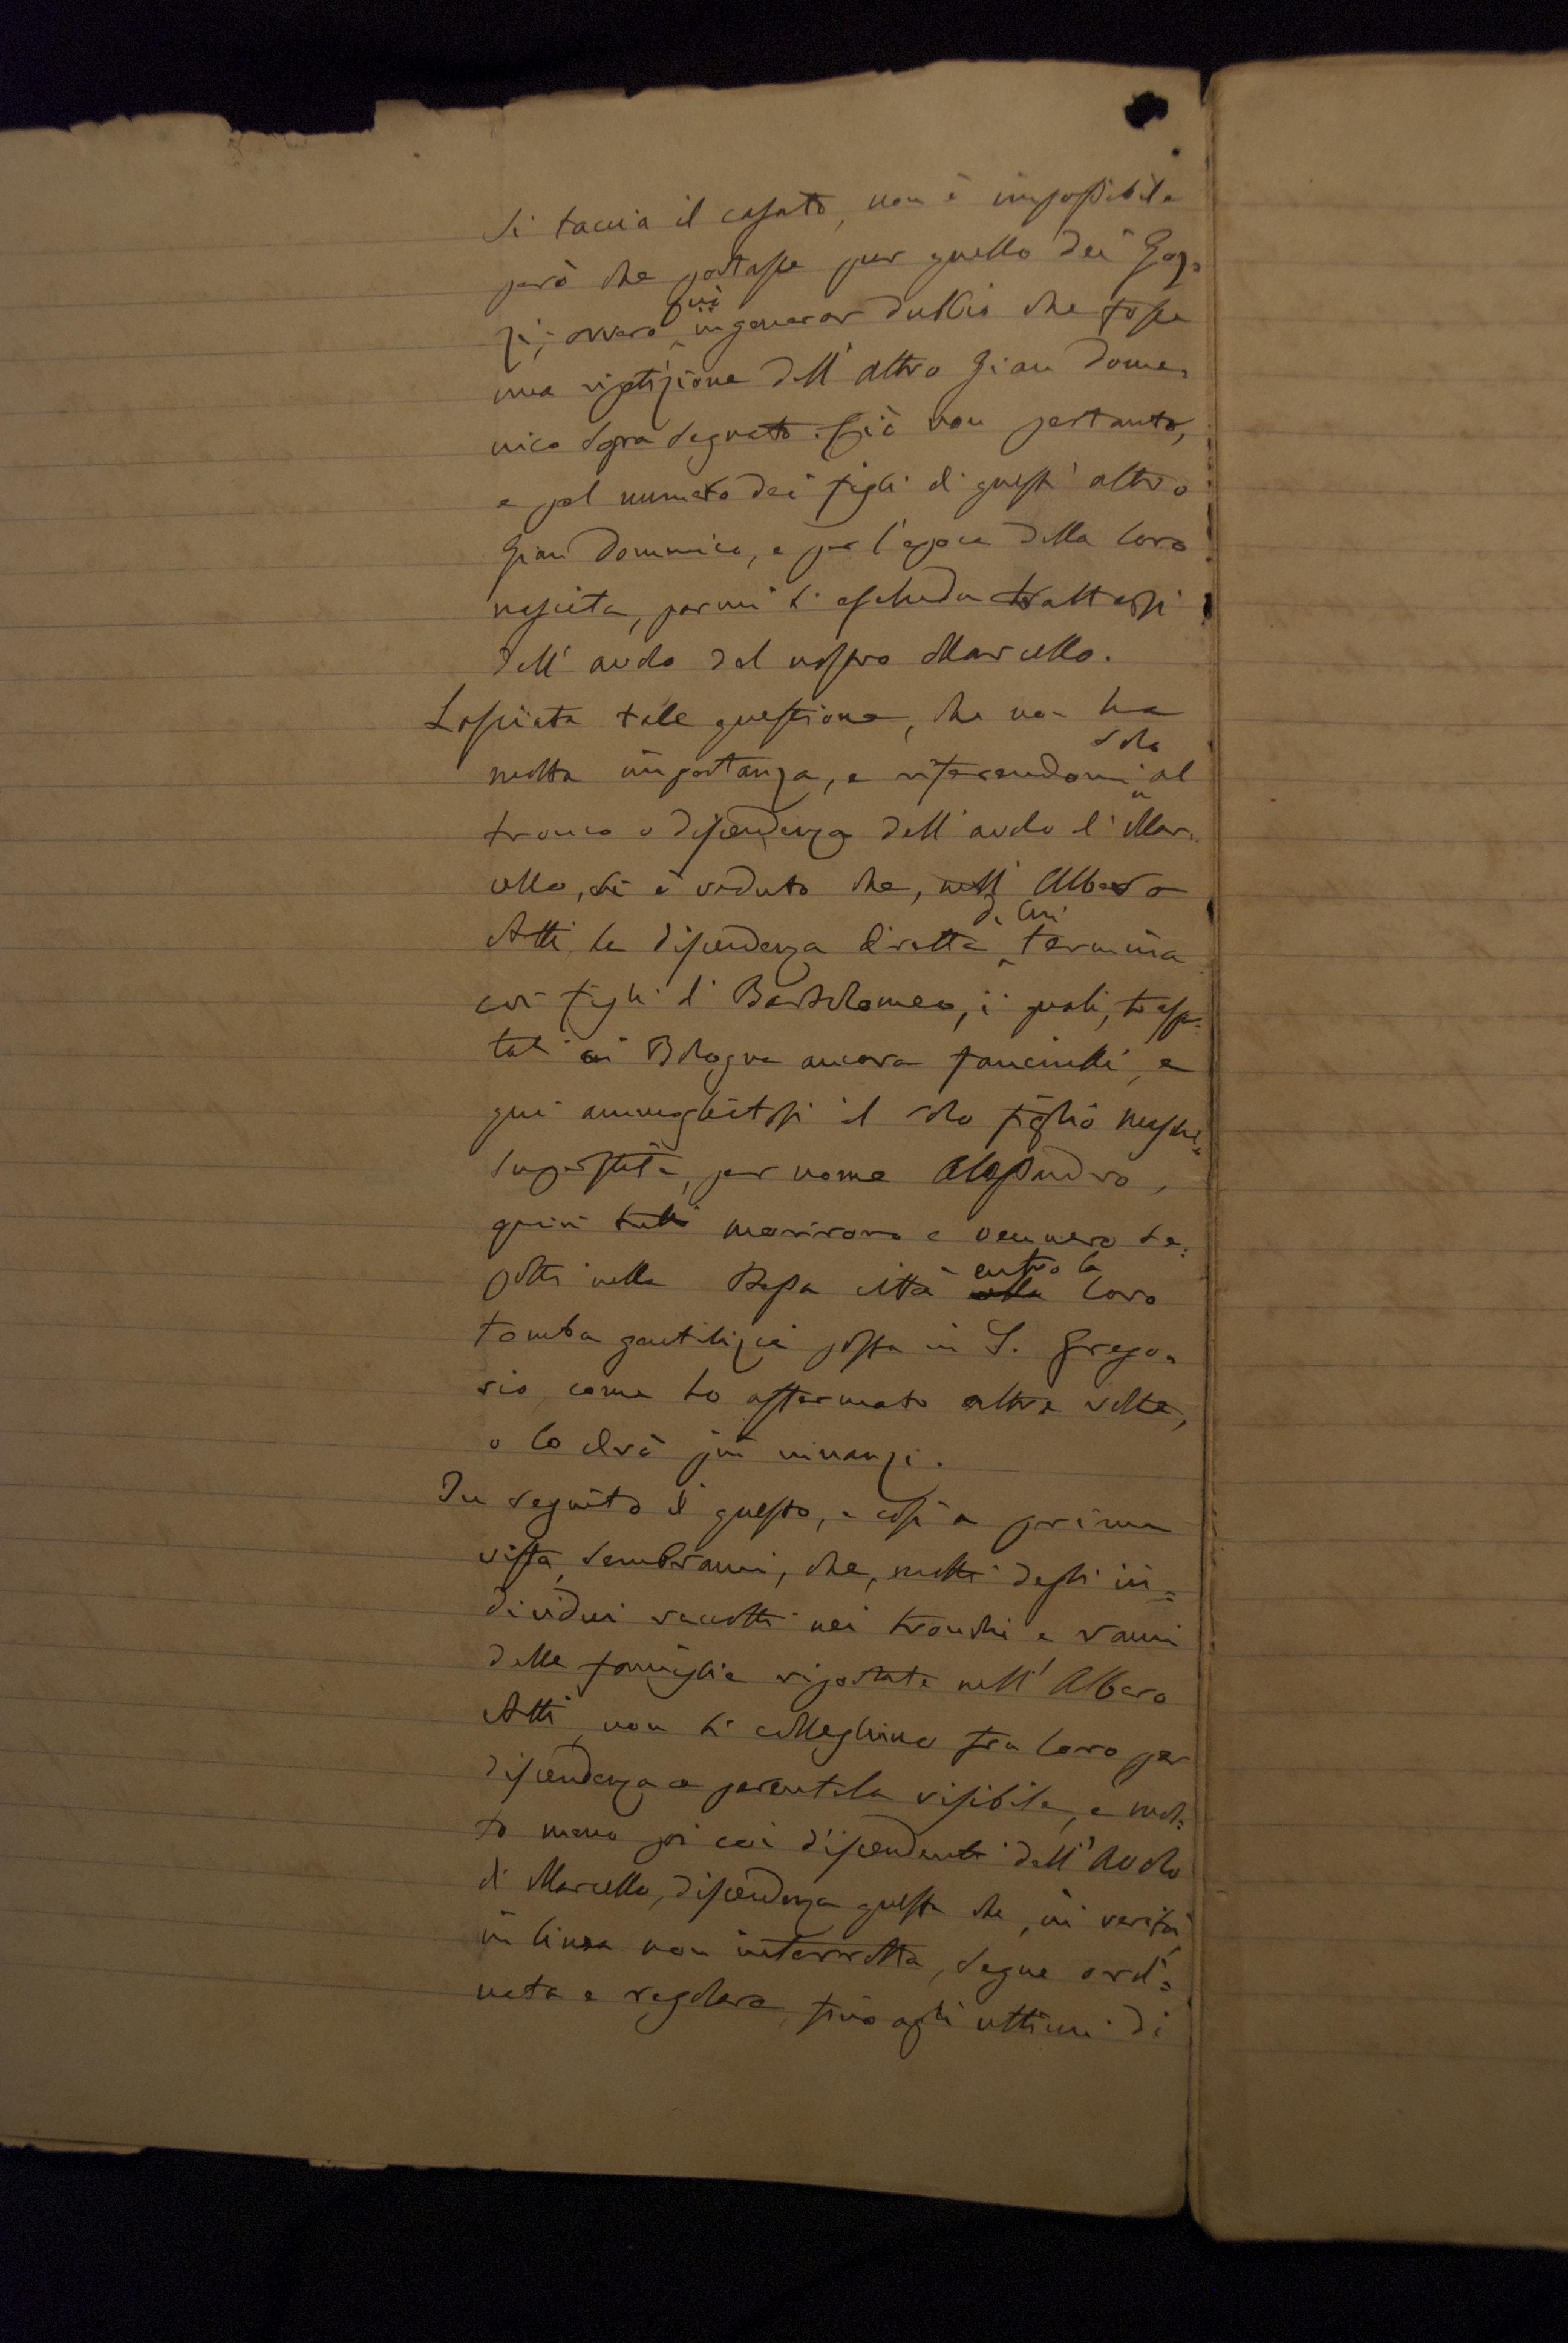 si taccia il casato, non è impossibile
però che portasse pur quello dei Goz=
zi; ovvero può ingenerar dubbio che fosse
una ripetizione dell'altro Gian Dome=
nico sopra segnato. Ciò non pertanto,
e pel numero dei figli di quest'altro
Gian Domenico, e per l'epoca della loro
nascita, parmi si escluda trattarsi
dell'avolo del nostro Marcello.
Lasciata tale questione, che non ha
molta importanza, e riferendomi solo al
tronco o discendenza dell'avolo di Mar=
cello, si è veduto che, nell'Albero
Atti, la discendenza diretta di lui termina
coi figli di Bartolomeo, i quali, traspor=
tati a Bologna ancora fanciulli, e
qui ammogliatosi il solo figlio maschi=
superstite, per nome Alessandro,
quivi tutti morirono e vennero se=
polti nella stessa città entro la loro
tomba gentilizia posta in S. Grego=
rio, come ho affermato altre volte,
o lo dirò più innanzi.
In seguito di questo, e così a prima
vista, sembrami, che, molti degli in=
dividui raccolti nei tronchi e rami
delle famiglie riportate nell'Albero
Atti, non si colleghino fra loro per
discendenza o parentela visibile, e mol=
to meno poi coi discendenti dell'Avolo
di Marcello, discendenza questa che, in verità,
in linea non interrotta, segue ordi=
nata e regolare, fino agli ultimi di